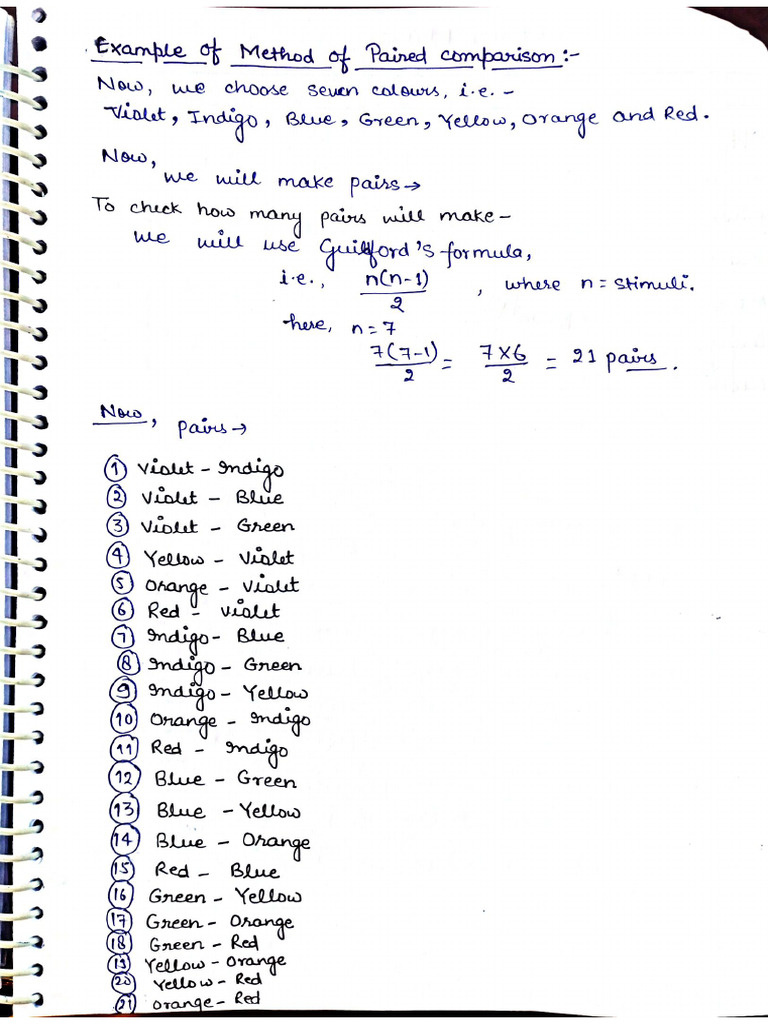 Example of Method of Paired comparison:-
Now, we choose seven colours, i.e. -
Violet, Indigo, Blue, Green, Yellow, Orange and Red.
Now,
we will make pairs→
To check how many pairs will make-
we will use Guilford's formula,
i.e., n(n-1)/2 , where n = stimuli.
here, n=7
7(7-1)/2 = 7×6/2 = 21 pairs.
Now, pairs→
① Violet - Indigo
② Violet - Blue
③ Violet - Green
④ Yellow - Violet
⑤ Orange - Violet
⑥ Red - Violet
⑦ Indigo - Blue
⑧ Indigo - Green
⑨ Indigo - Yellow
⑩ Orange - Indigo
⑪ Red - Indigo
⑫ Blue - Green
⑬ Blue - Yellow
⑭ Blue - Orange
⑮ Red - Blue
⑯ Green - Yellow
⑰ Green - Orange
⑱ Green - Red
⑲ Yellow - Orange
⑳ Yellow - Red
㉑ Orange - Red